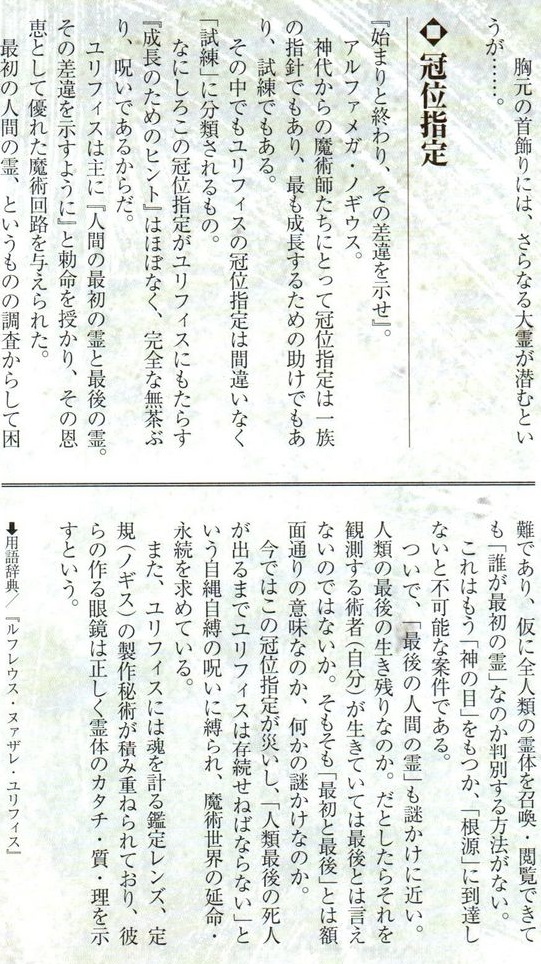 胸元の首飾りには、さらなる大霊が潜むとい
うが……。
◆ 冠位指定
『始まりと終わり、その差違を示せ』。
アルファメガ・ノギウス。
神代からの魔術師たちにとって冠位指定は一族
の指針でもあり、最も成長するための助けでもあ
り、試練でもある。
その中でもユリフィスの冠位指定は間違いなく
「試練」に分類されるもの。
なにしろこの冠位指定がユリフィスにもたらす
『成長のためのヒント』はほぼなく、完全な無茶ぶ
り、呪いであるからだ。
ユリフィスは主に『人間の最初の霊と最後の霊。
その差違を示すように』と勅命を授かり、その恩
恵として優れた魔術回路を与えられた。
最初の人間の霊、というものの調査からして困
難であり、仮に全人類の霊体を召喚・閲覧できて
も「誰が最初の霊」なのか判別する方法がない。
これはもう「神の目」をもつか、「根源」に到達し
ないと不可能な案件である。
ついで、「最後の人間の霊」も謎かけに近い。
人類の最後の生き残りなのか。だとしたらそれを
観測する術者（自分）が生きていては最後とは言え
ないのではないか。そもそも「最初と最後」とは額
面通りの意味なのか、何かの謎かけなのか。
今ではこの冠位指定が災いし、「人類最後の死人
が出るまでユリフィスは存続せねばならない」と
いう自縄自縛の呪いに縛られ、魔術世界の延命・
永続を求めている。
また、ユリフィスには魂を計る鑑定レンズ、定
規（ノギス）の製作秘術が積み重ねられており、彼
らの作る眼鏡は正しく霊体のカタチ・質・理を示
すという。
⬇用語辞典／『ルフレウス・ヌァザレ・ユリフィス』